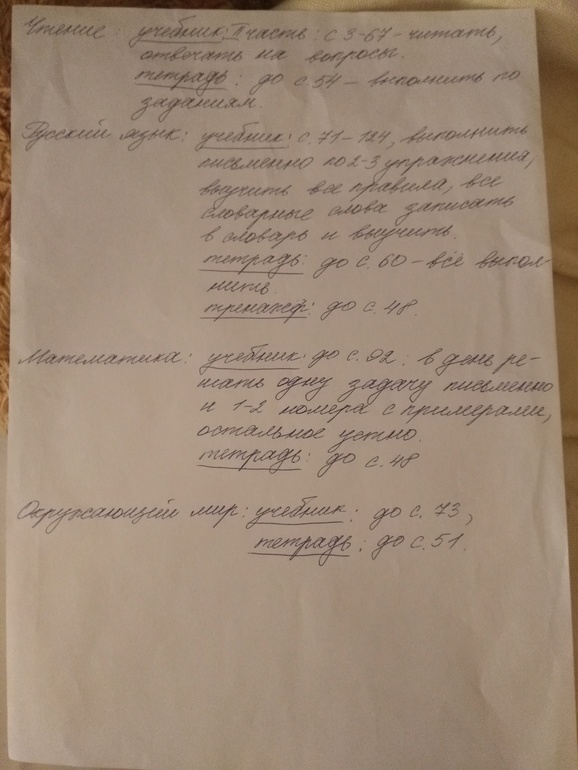 Чтение: учебник: II часть: с 3-67 - читать,
отвечать на вопросы.
тетрадь: до с 54 - выполнить по
заданиям.
Русский язык: учебник: с. 71-124, выполнить
письменно по 2-3 упражнения,
выучить все правила, все
словарные слова записать
в словарь и выучить.
тетрадь: до с. 60 - всё выпол-
нить.
тренажёр: до с. 48.
Математика: учебник: до с. 92: в день ре-
шать одну задачу письменно
и 1-2 номера с примерами,
остальное устно.
тетрадь: до с. 48
Окружающий мир: учебник: до с. 73,
тетрадь: до с. 51.